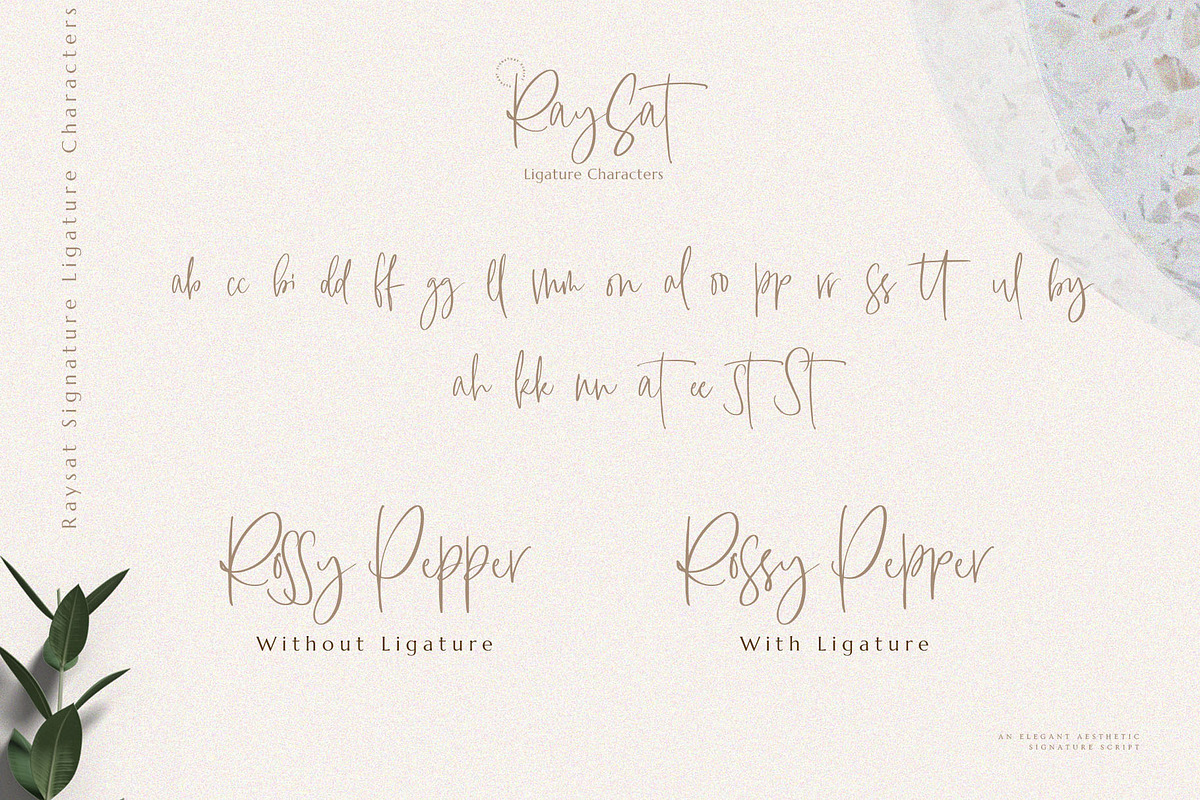 Raysat Signature Ligature Characters
RaySat
Ligature Characters
ab cc bi dd ff gg ll mm on al oo pp rr ss tt ul by
ah kk nn at ee st St
Rossy Pepper
Without Ligature
Rossy Pepper
With Ligature
AN ELEGANT AESTHETIC
SIGNATURE SCRIPT